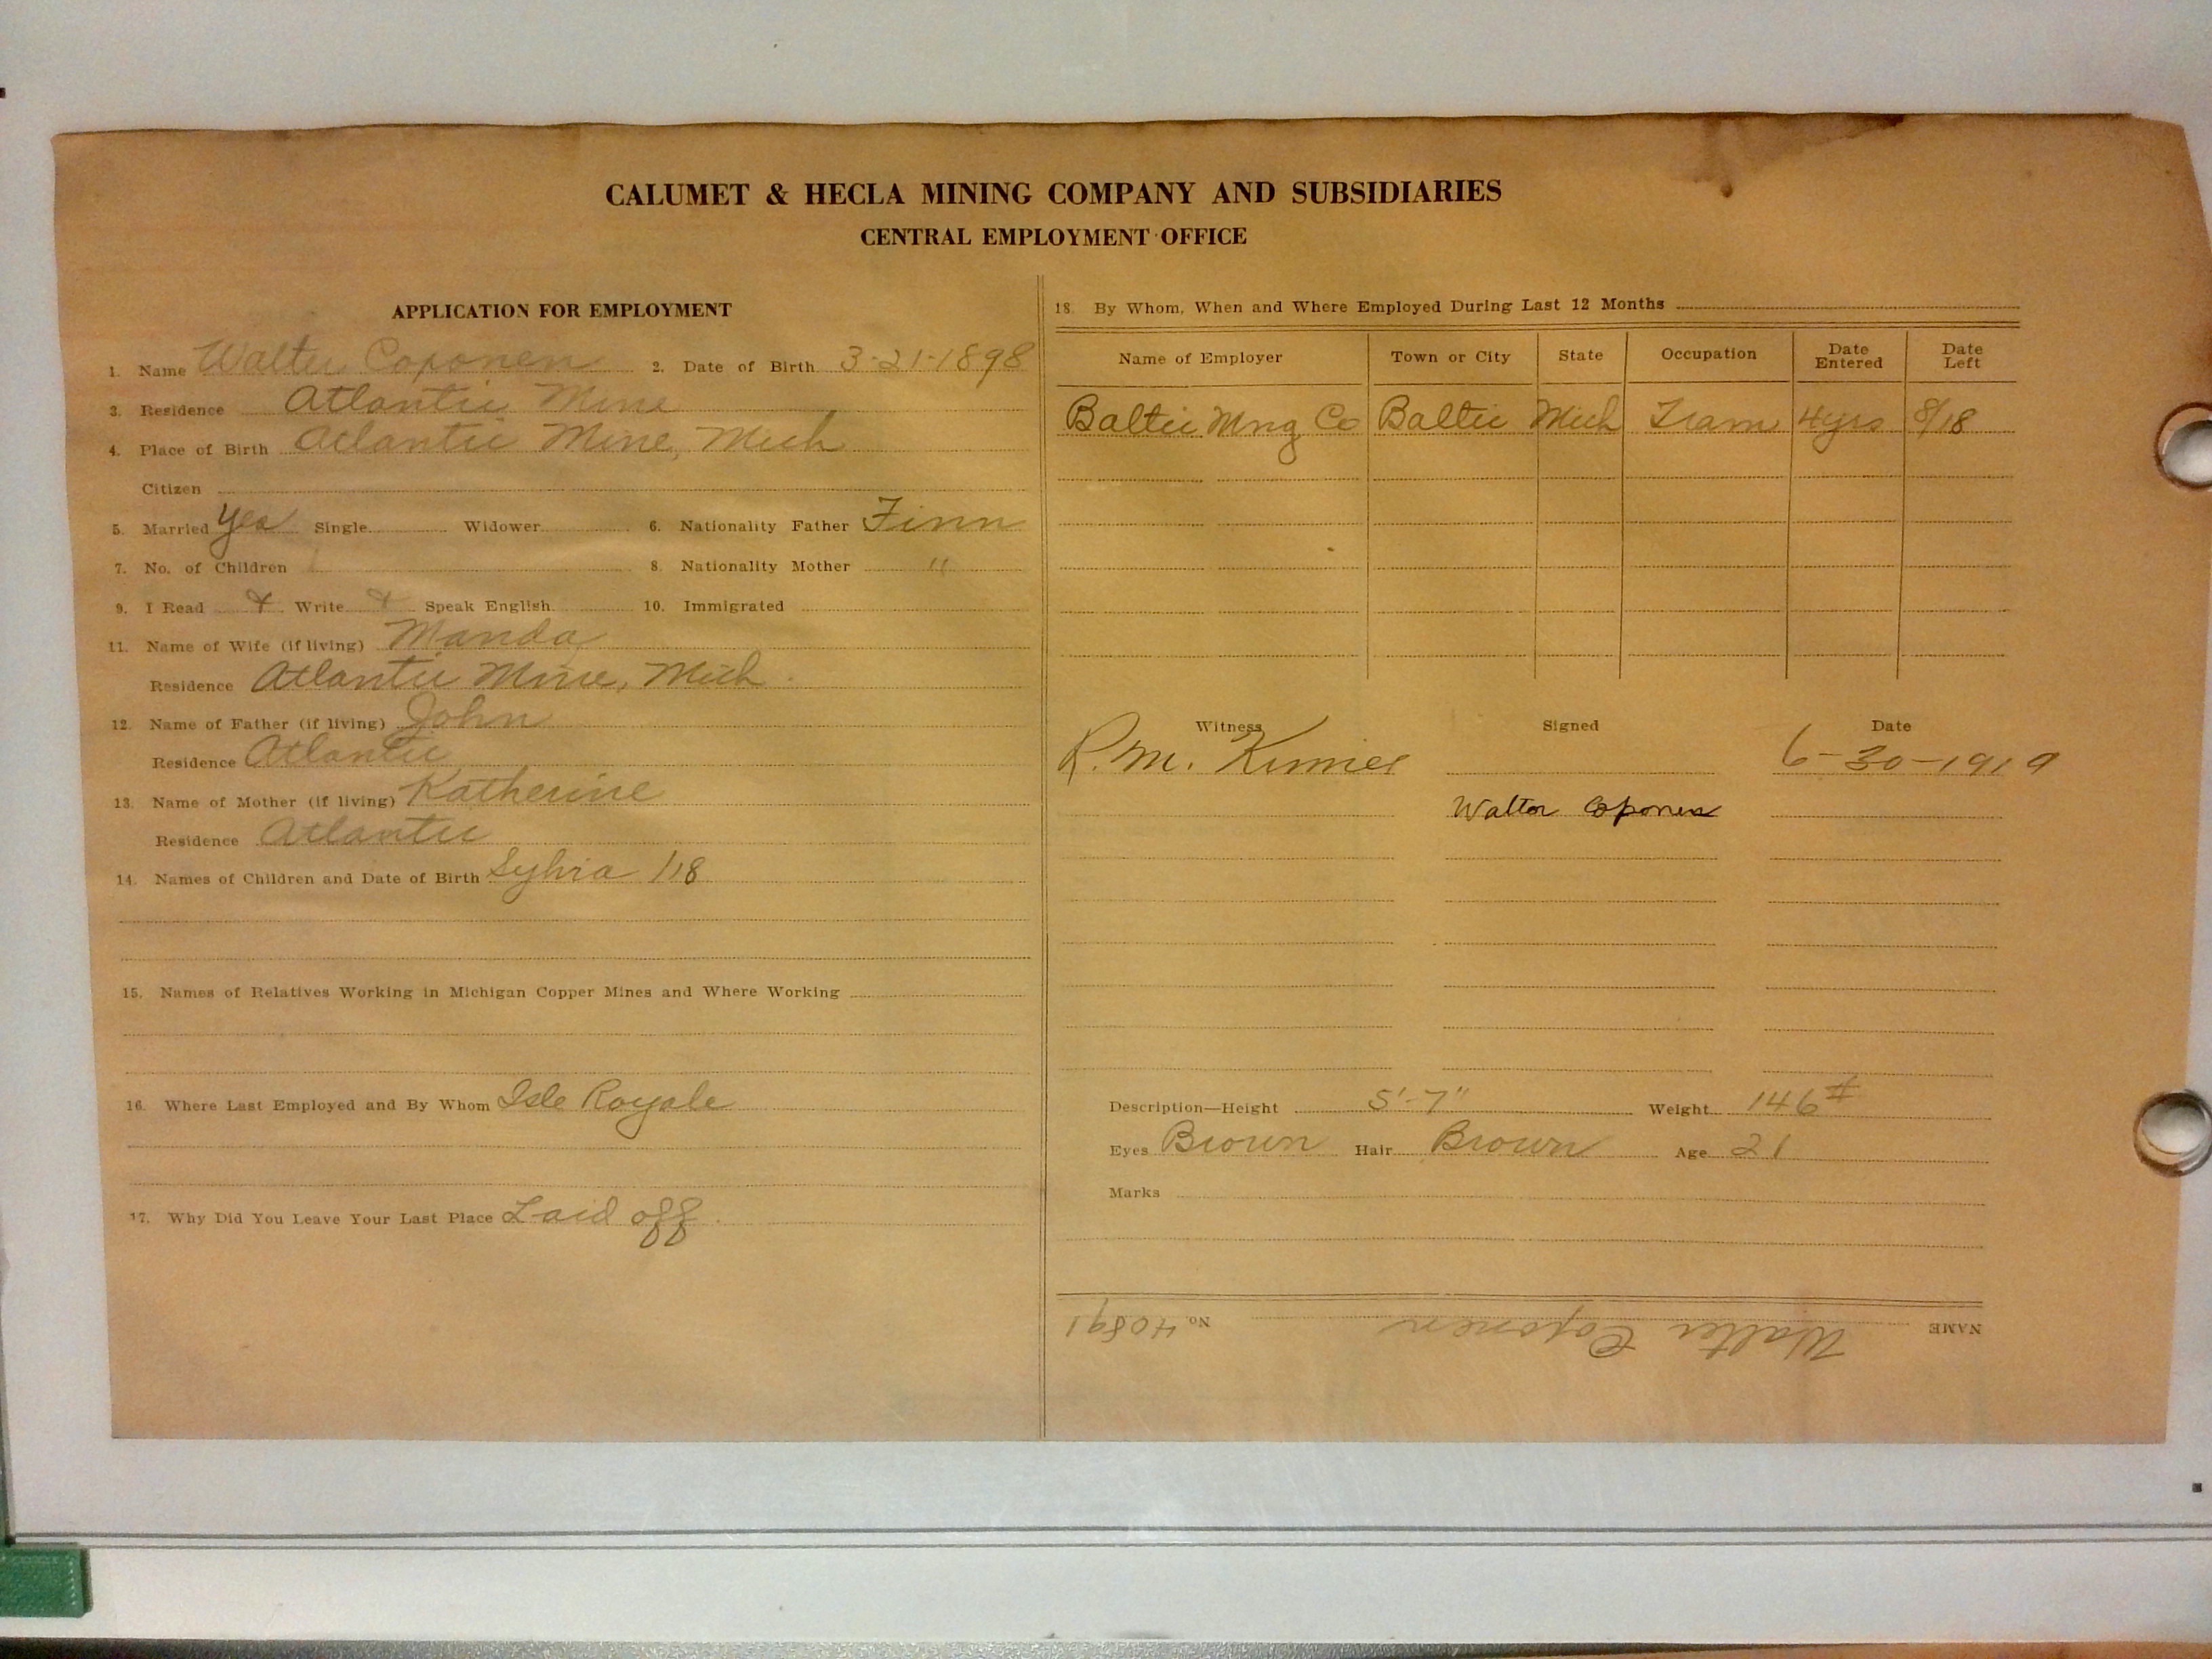 CALUMET & HECLA MINING COMPANY AND SUBSIDIARIES
CENTRAL EMPLOYMENT OFFICE
APPLICATION FOR EMPLOYMENT
1. Name Walter Coponen 2. Date of Birth 3-21-1898
3. Residence Atlantic Mine
4. Place of Birth Atlantic Mine, Mich
Citizen
5. Married Yes Single Widower 6. Nationality Father Finn
7. No. of Children 1 8. Nationality Mother "
9. I Read Write Speak English 10. Immigrated
11. Name of Wife (if living) Manda
Residence Atlantic Mine, Mich.
12. Name of Father (if living) John
Residence Atlantic
13. Name of Mother (if living) Katherine
Residence Atlantic
14. Names of Children and Date of Birth Sylvia 1/18
15. Names of Relatives Working in Michigan Copper Mines and Where Working
16. Where Last Employed and By Whom Isle Royale
17. Why Did You Leave Your Last Place Laid off.
18. By Whom, When and Where Employed During Last 12 Months
Name of Employer Town or City State Occupation Date Entered Date Left
Baltic Mng Co Baltic Mich Tram 4yrs 8/18
Witness Signed Date
R. M. 6-30-1919
Walter Coponen
Description—Height 5'-7" Weight 146#
Eyes Brown Hair Brown Age 21
Marks
NAME Walter Coponen No. 40891